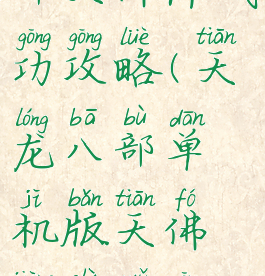 gōng gōng lüè tiān
功攻略(天
lóng bā bù dān
龙八部单
jī bǎn tiān fó
机版天佛